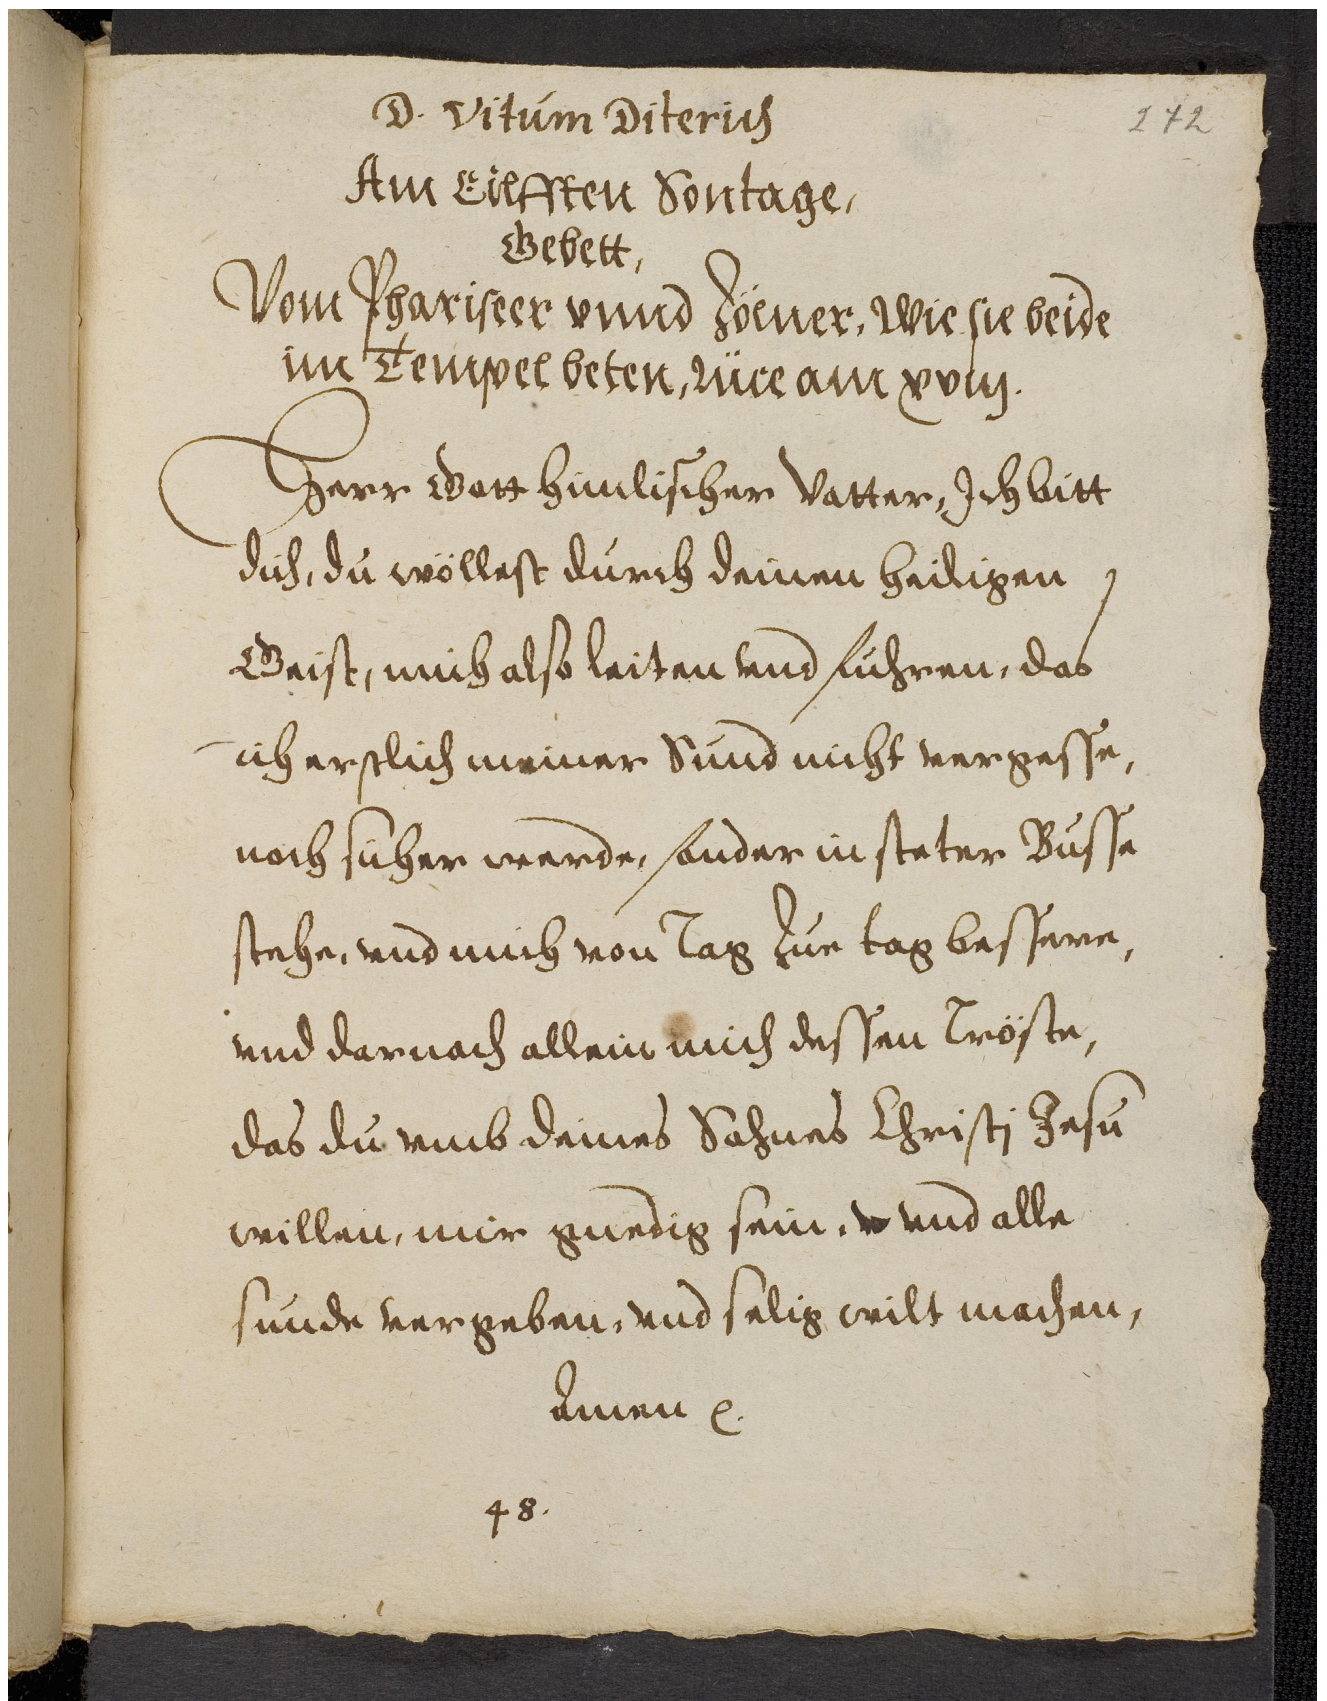 D. Vitum Diterich
272
Am Eilfften Sontage,
Gebett,
Vom Phariseer vnnd Zölner, Wie sie beide
im Tempel beten, Luce am xviij.
Herr Gott himlischer Vatter, Ich bitt
dich, du wöllest durch deinen heiligen
Geist, mich also leiten vnd führen, das
ich erstlich meiner Sünd nicht vergesse,
noch sicher werde, sonder in steter Busse
stehe, vnd mich von Tag zue tag bessere,
vnd darnach allein mich dessen Tröste,
das du vmb deines Sohnes Christj Jesu
willen, mir gnedig sein, vnd alle
sünde vergeben, vnd selig wilt machen,
Amen
48.